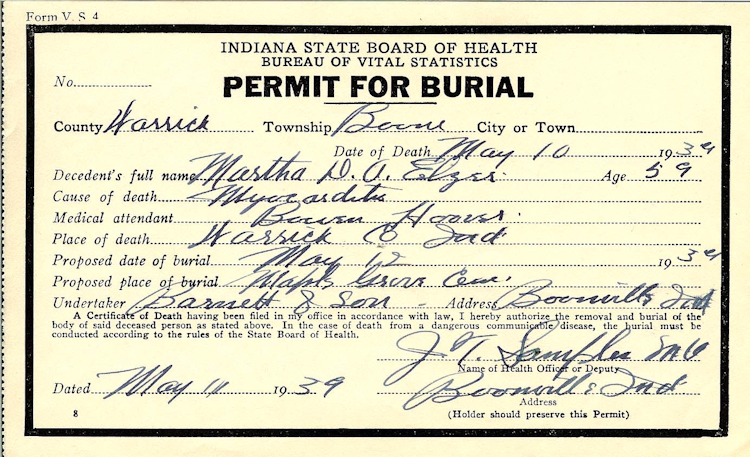 Form V. S 4
INDIANA STATE BOARD OF HEALTH
BUREAU OF VITAL STATISTICS
No.
PERMIT FOR BURIAL
County Warrick Township Boone City or Town
Date of Death May 10 1939
Decedent's full name Martha D. A. Elzer Age 59
Cause of death Myocarditis
Medical attendant Bowen Hoover
Place of death Warrick Co Ind
Proposed date of burial May 12 1939
Proposed place of burial Maple Grove Cem.
Undertaker Barnett & Son Address Boonville Ind
A Certificate of Death having been filed in my office in accordance with law, I hereby authorize the removal and burial of the
body of said deceased person as stated above. In the case of death from a dangerous communicable disease, the burial must be
conducted according to the rules of the State Board of Health.
J T. Samples
Name of Health Officer or Deputy
Dated May 11 1939 Boonville Ind
Address
8 (Holder should preserve this Permit)